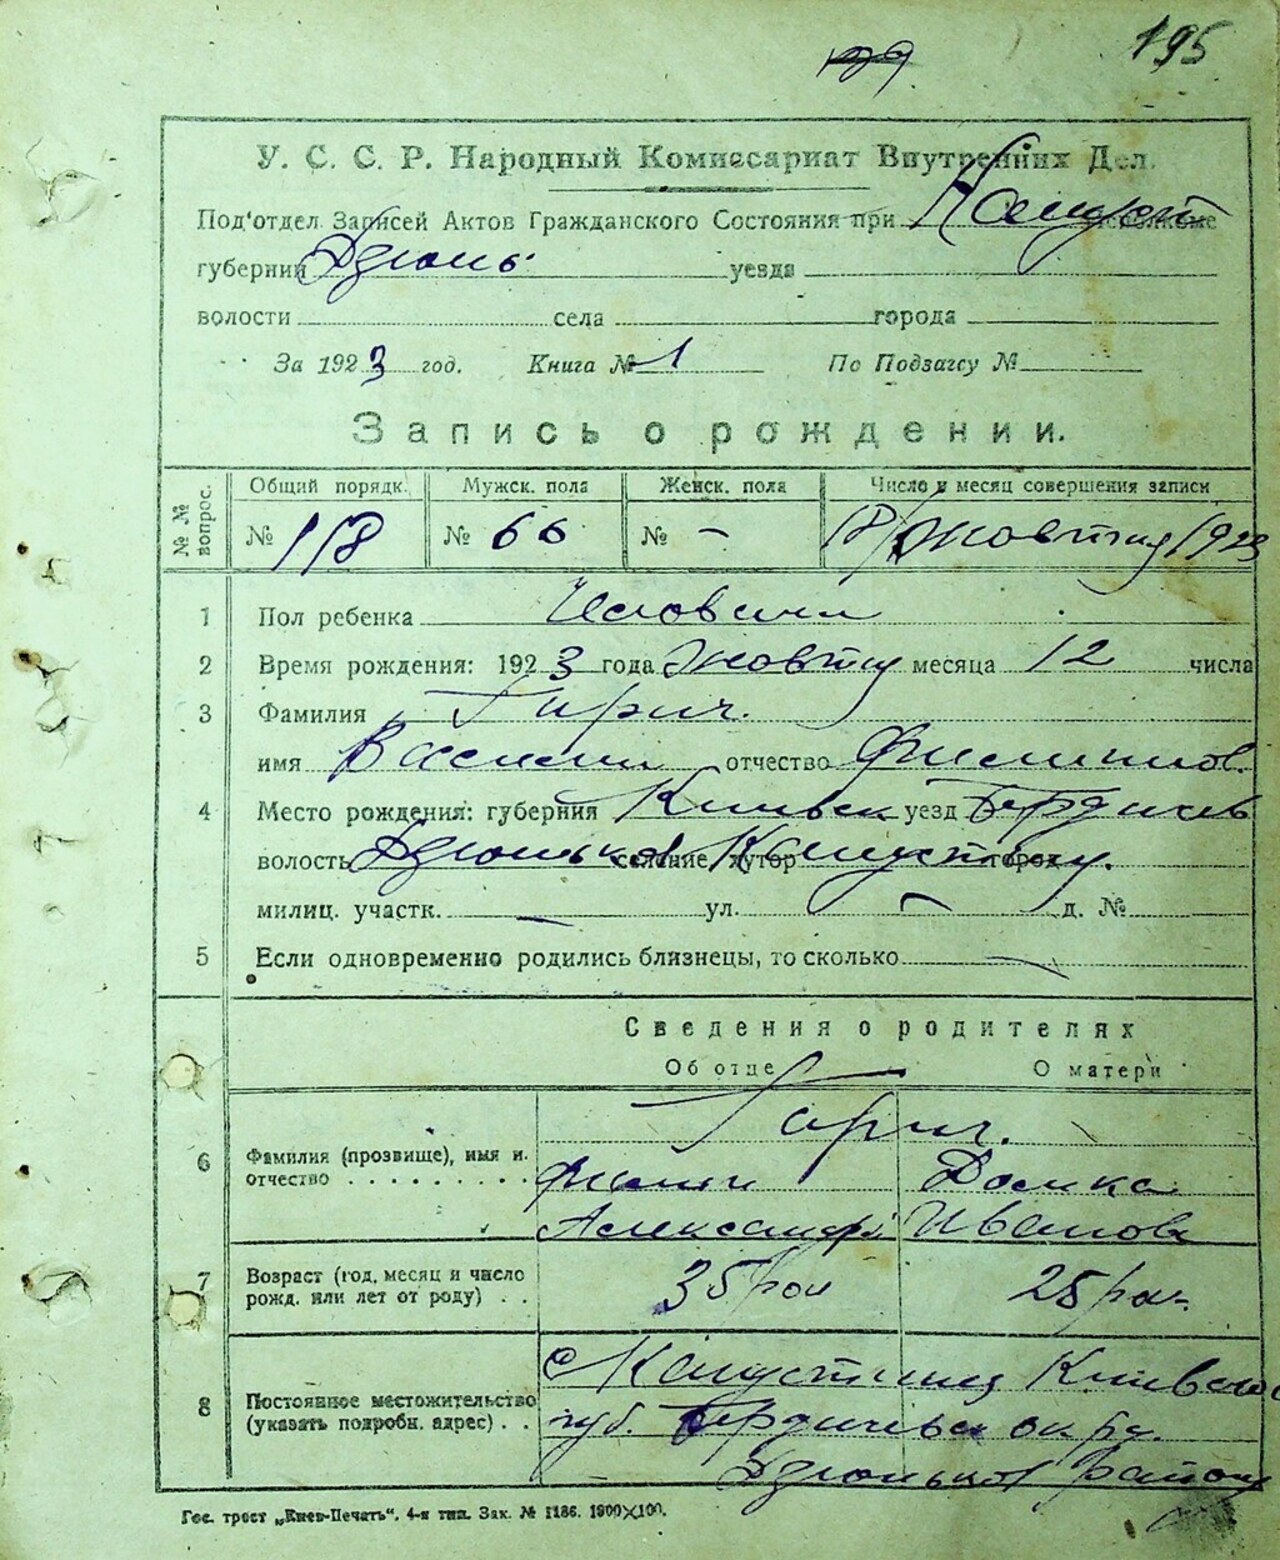 195
У. С. С. Р. Народный Комиссариат Внутренних Дел.
Под'отдел Записей Актов Гражданского Состояния при Капуст исполкоме
губернии Дзюньк уезда
волости села города
За 1923 год. Книга № 1 По Подзагсу №
Запись о рождении.
№ № вопрос.
Общий порядк. Мужск. пола Женск. пола Число и месяц совершения записи
№ 118 № 66 № - 18/Жовтня 1923
1 Пол ребенка Чоловича
2 Время рождения: 1923 года Жовтня месяца 12 числа
3 Фамилия Гирич.
имя Василий отчество Филипов.
4 Место рождения: губерния Киивськ уезд Бердичев
волость Дзюньков селение, хутор город Капустину.
милиц. участк. — ул. — д. №
5 Если одновременно родились близнецы, то сколько —
Сведения о родителях
Об отце О матери
Гирич.
6 Фамилия (прозвище), имя и отчество . . . . . . . . . Филип Домка
Александр. Иванов
7 Возраст (год, месяц и число рожд. или лет от роду) . . 35 рок 25 рок
8 Постоянное местожительство (указать подробн. адрес) . . с Капустинц Киивської
губ. Бердичевськ окру.
Дзюньков району
Гос. трест „Киев-Печать“. 4-я тип. Зак. № 1186. 1900×100.